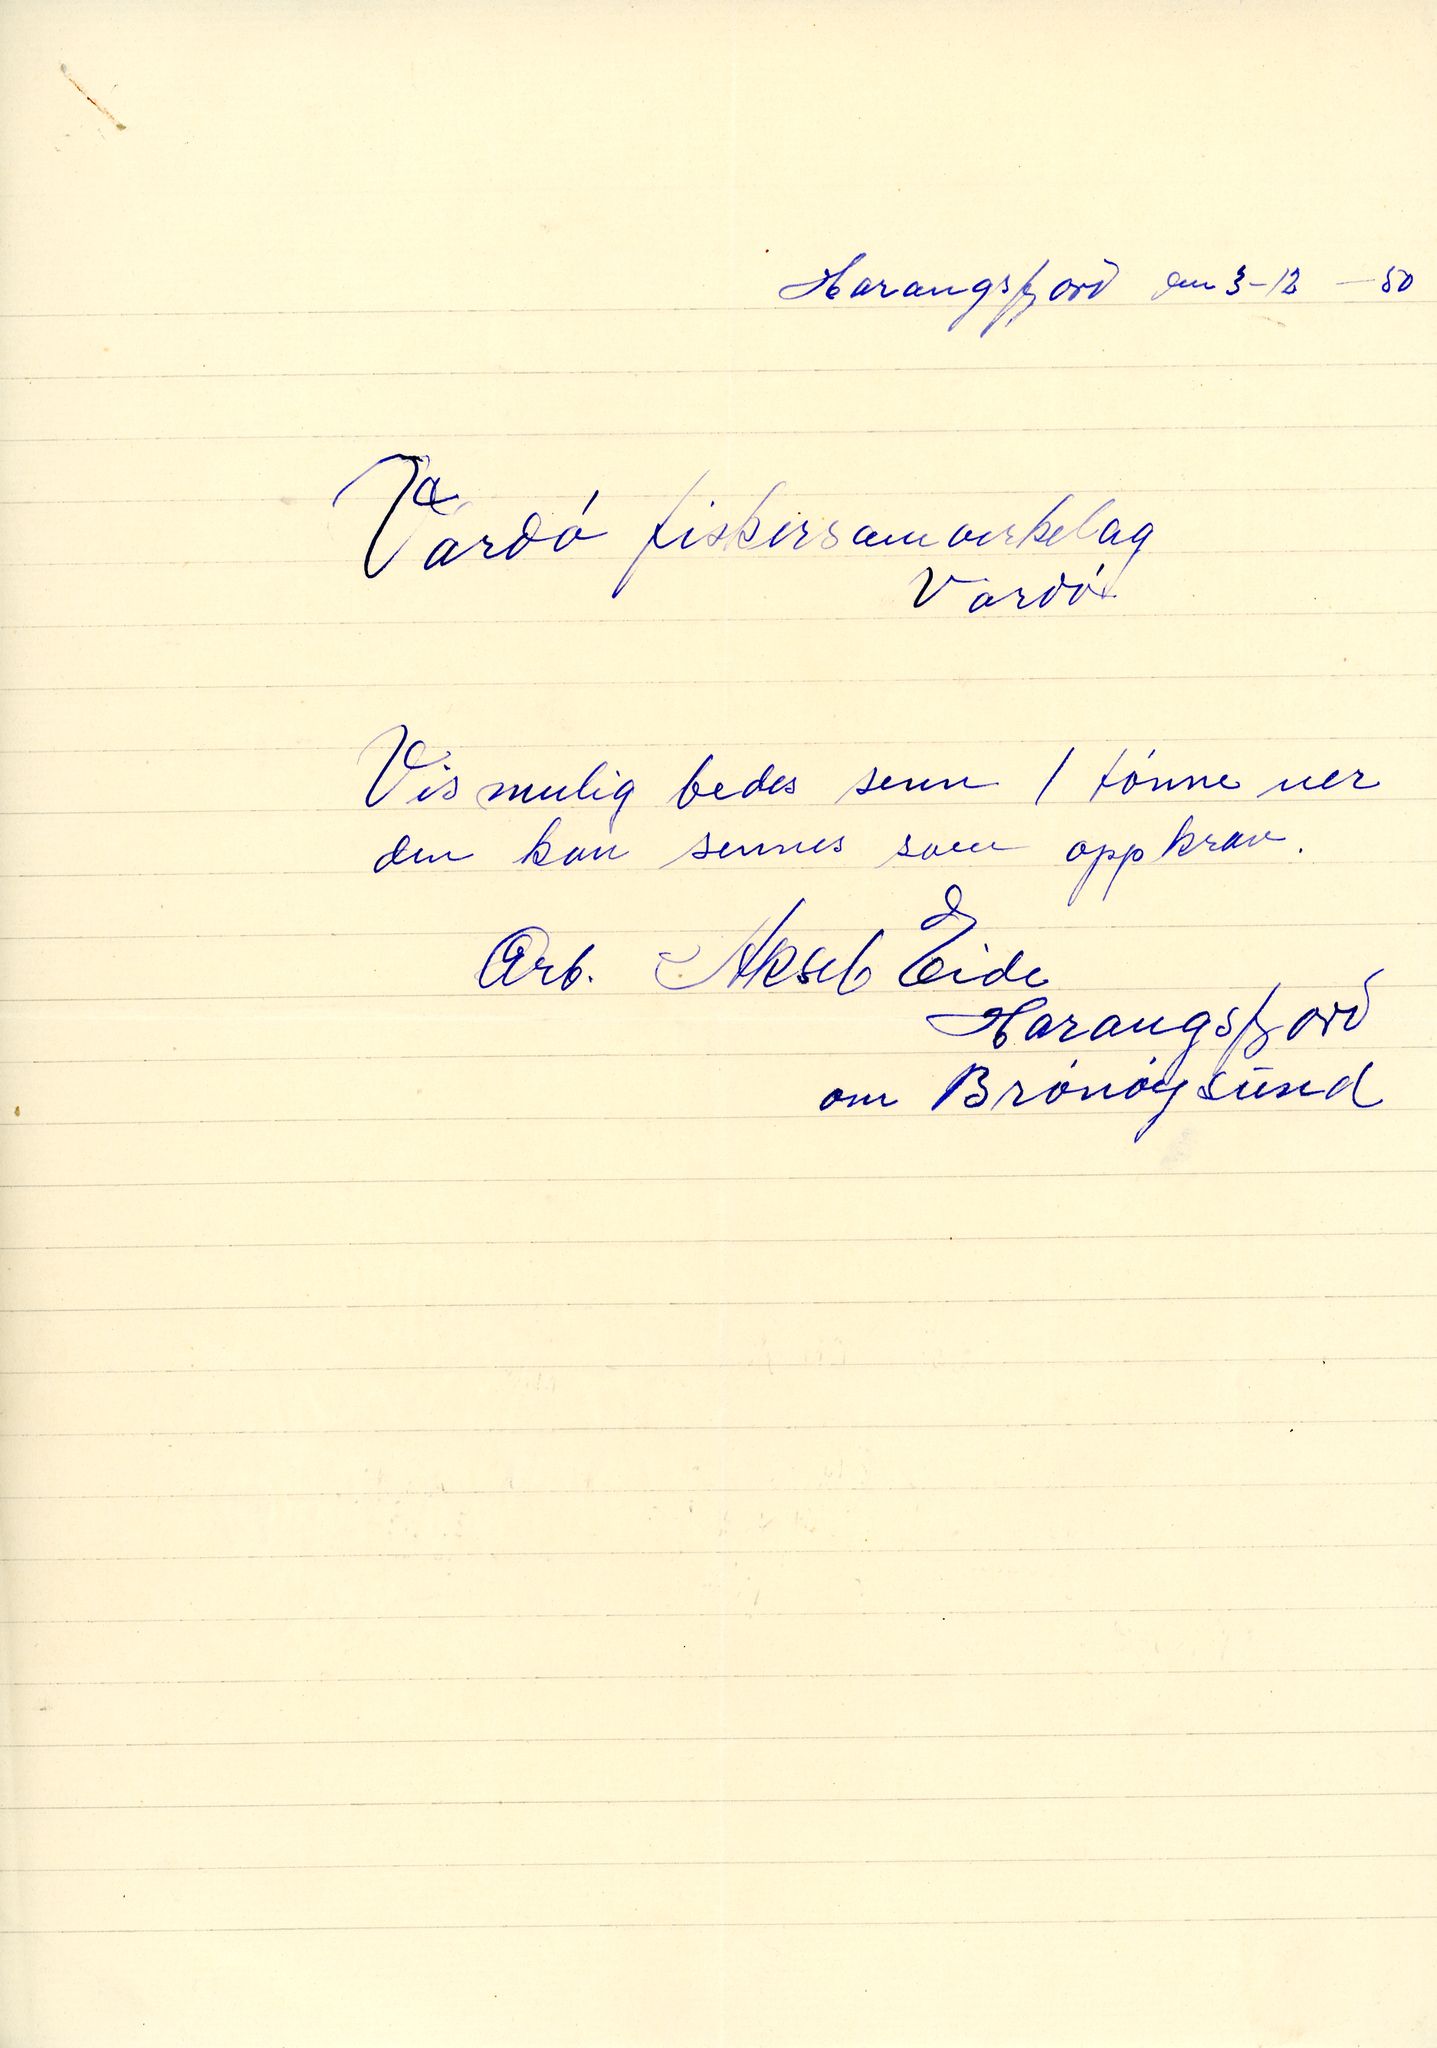 Harangsfjord den 3-12-50
Vardó fiskersamvirkelag
Vardó
Vis mulig bedes senn 1 tónne uer
den kan sennes som oppkrav.
Arb. Aksel Eide
Harangsfjord
om Brónóysund